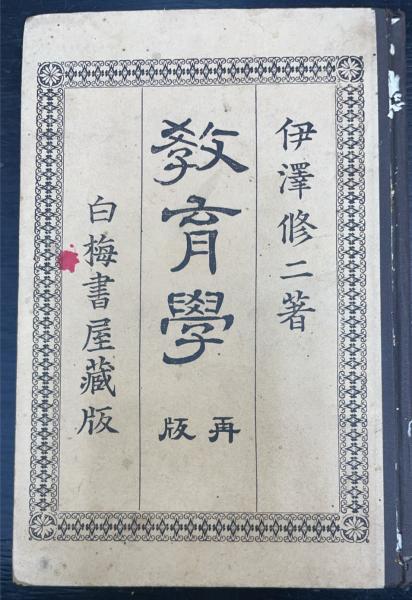 伊澤修二著
教育學
再版
白梅書屋藏版